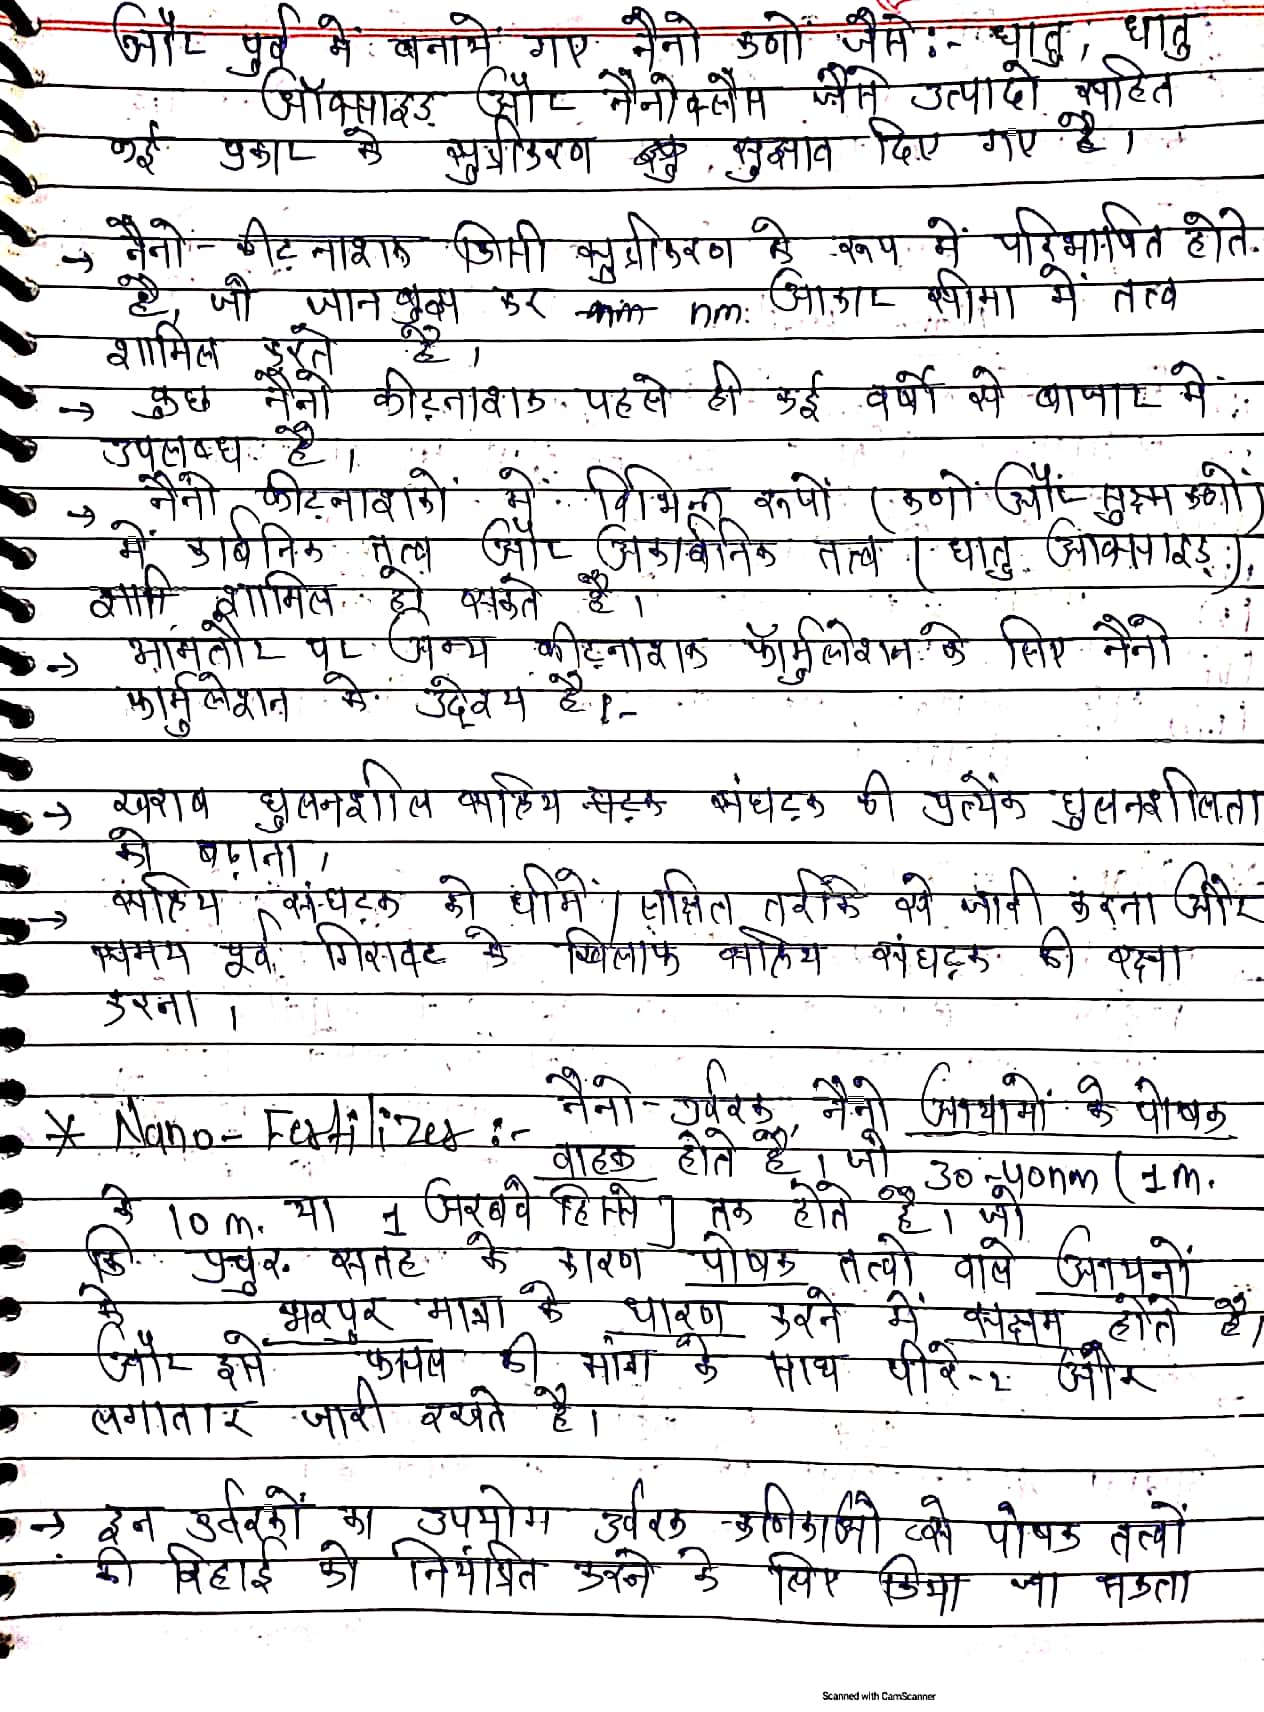 और पुर्व में बनाये गए नैनो कणों जैसे:- धातु, धातु
ऑक्साइड और नैनोक्लैस जैसे उत्पादो सहित
कई प्रकार के सुत्रीकरण सुझाव दिए गए है।
→ नैनो-कीटनाशक किसी सुत्रीकरण के रूप में परिभाषित होते
है, जो जानबुझ कर nm. आकार सीमा में तत्व
शामिल करते है।
→ कुछ नैनो कीटनाशक पहले ही कई वर्षो से बाजार में
उपलब्ध है।
→ नैनो कीटनाशकों में विभिन्न रूपों (कणों और सुक्ष्म कणों)
में कार्बनिक तत्व और अकार्बनिक तत्व (धातु आक्साइड)
शामिल हो सकते है।
→ आमतौर पर अन्य कीटनाशक फॉर्मुलेशन के लिए नैनो
फार्मुलेशन के उद्देश्य है।-
→ खराब घुलनशील सक्रिय घटक संघटक की प्रत्येक घुलनशीलता
को बढ़ाना।
→ सक्रिय संघटक को धीमें/लक्षित तरीके से जारी करना और
समय पूर्व गिरावट के खिलाफ सक्रिय संघटक की रक्षा
करना।
* Nano-Fertilizer :- नैनो-उर्वरक, नैनो आयामों के पोषक
वाहक होते है। जो 30-40nm (1m.
के 10m. या 1 अरबवे हिस्से] तक होते है। जो
कि प्रचुर सतह के कारण पोषक तत्वो वाले आयनों
के भरपुर मात्रा के धारण करने में सक्षम होते है।
और इसे फसल की मांग के साथ धीरे-२ और
लगातार जारी रखते है।
→ इन उर्वरकों का उपयोग उर्वरक कणिकाओ से पोषक तत्वों
की रिहाई को नियंत्रित करने के लिए किया जा सकता
Scanned with CamScanner